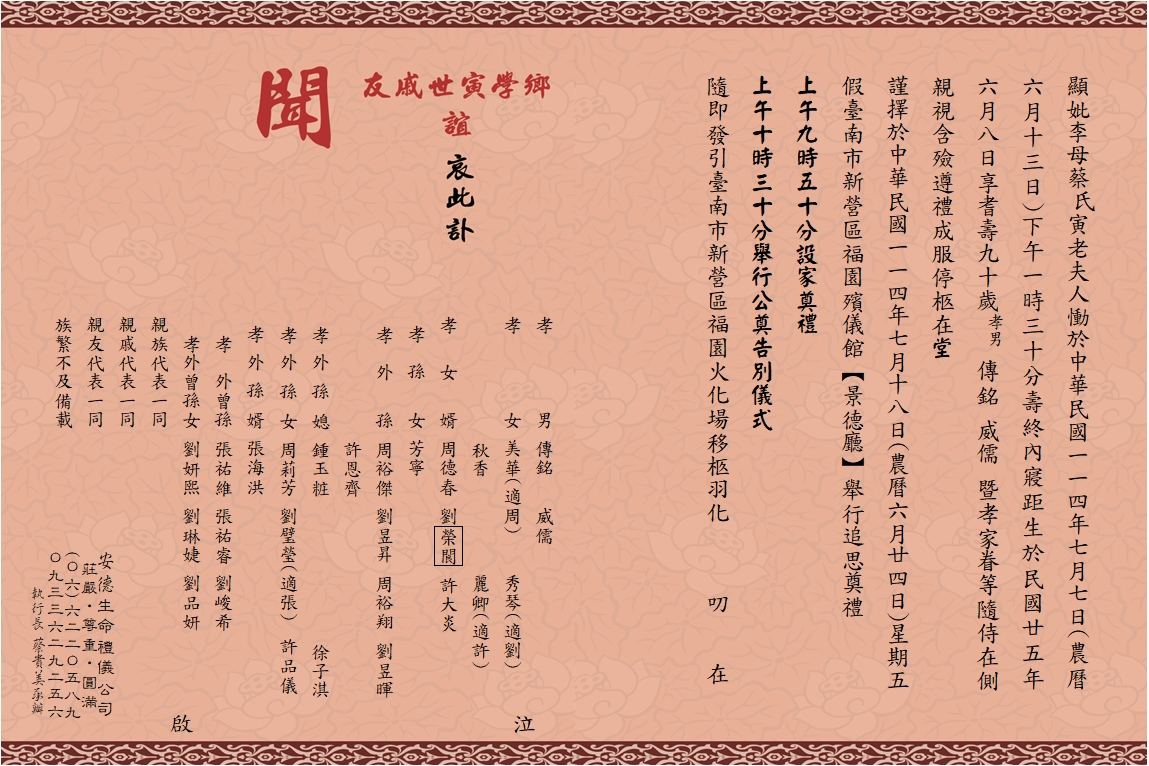 顯妣李母蔡氏寅老夫人慟於中華民國一一四年七月七日(農曆
六月十三日)下午一時三十分壽終內寢距生於民國廿五年
六月八日享耆壽九十歲孝男 傳銘 威儒 暨孝家眷等隨侍在側
親視含殮遵禮成服停柩在堂
謹擇於中華民國一一四年七月十八日(農曆六月廿四日)星期五
假臺南市新營區福園殯儀館【景德廳】舉行追思奠禮
上午九時五十分設家奠禮
上午十時三十分舉行公奠告別儀式
隨即發引臺南市新營區福園火化場移柩羽化 叨 在
鄉學寅世戚友
誼
哀此訃
聞
孝男 傳銘 威儒
孝女 美華(適周) 秀琴(適劉) 泣
秋香 麗卿(適許)
孝女婿 周德春 劉榮閣 許大炎
孝孫女 芳寧
孝外孫 周裕傑 劉昱昇 周裕翔 劉昱暉
許恩齊
孝外孫媳 鍾玉粧 徐子淇
孝外孫女 周莉芳 劉璧瑩(適張) 許品儀
孝外孫婿 張海洪
孝外曾孫 張祐維 張祐睿 劉峻希
孝外曾孫女 劉妍熙 劉琳婕 劉品妍 啟
親族代表一同
親戚代表一同
親友代表一同
族繁不及備載
安德生命禮儀公司
莊嚴·尊重·圓滿
(〇六)六二二〇五八九
〇九三三六二九二五六
執行長 蔡貴美承辦